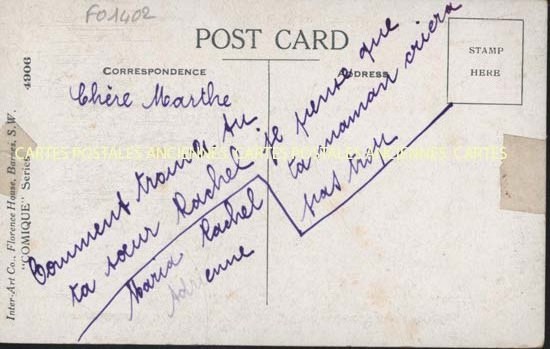 F01402
POST CARD
CORRESPONDENCE
ADDRESS
STAMP
HERE
Inter-Art Co., Florence House, Barnes, S.W.
"COMIQUE" Series 4906
CARTES POSTALES ANCIENNES CARTES
Chère Marthe
Comment trouves tu
ta sœur Rachel je pense que
ta maman criera
pas trop
Maria Rachel
Adrienne